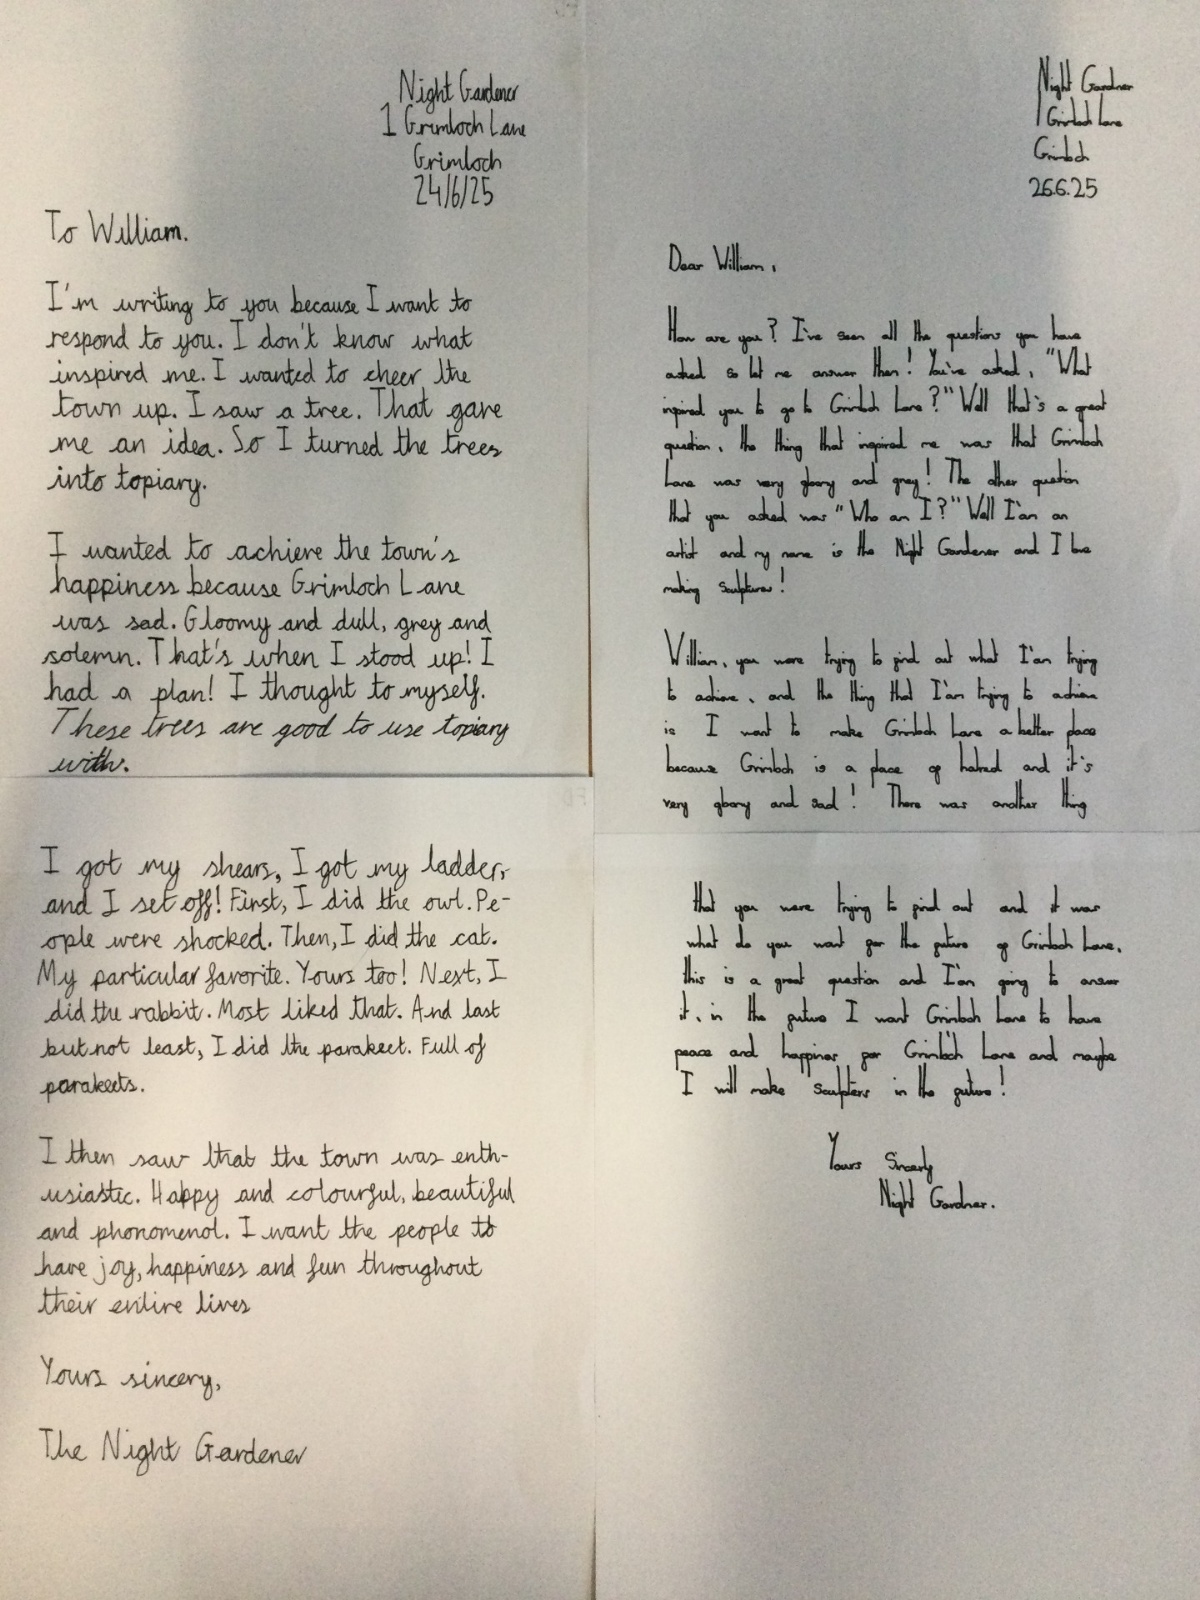 Night Gardener
1 Grimloch Lane
Grimloch
24/6/25
To William.
I'm writing to you because I want to
respond to you. I don't know what
inspired me. I wanted to cheer the
town up. I saw a tree. That gave
me an idea. So I turned the trees
into topiary.
I wanted to achieve the town's
happiness because Grimloch Lane
was sad. Gloomy and dull, grey and
solemn. That's when I stood up! I
had a plan! I thought to myself.
These trees are good to use topiary
with.
I got my shears, I got my ladder,
and I set off! First, I did the owl. Pe-
ople were shocked. Then, I did the cat.
My particular favorite. Yours too! Next, I
did the rabbit. Most liked that. And last
but not least, I did the parakeet. Full of
parakeets.
I then saw that the town was enth-
usiastic. Happy and colourful, beautiful
and phonomenol. I want the people to
have joy, happiness and fun throughout
their entire lives
Yours sincery,
The Night Gardener
Night Gardner
1 Grimloch Lane
Grimloch
26.6.25
Dear William,
How are you? I've seen all the questions you have
asked so let me answer them! You've asked, "What
inpired you to go to Grimloch Lane?" Well that's a great
question, the thing that inspired me was that Grimloch
Lane was very gloomy and grey! The other question
that you asked was "Who am I?" Well I'am an
artist and my name is the Night Gardener and I love
making sculptures!
William, you were trying to find out what I'am trying
to achieve, and the thing that I'am trying to achieve
is I want to make Grimloch Lane a better place
because Grimloch is a place of hatred and it's
very gloomy and sad! There was another thing
that you were trying to find out and it was
what do you want for the future of Grimloch Lane,
this is a great question and I'am going to answer
it, in the future I want Grimloch Lane to have
peace and happines for Grimloch Lane and maybe
I will make sculpters in the future!
Yours Sincerly
Night Gardner.